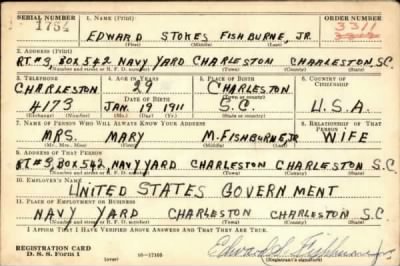 SERIAL NUMBER 1. NAME (Print) ORDER NUMBER
1754 EDWARD STOKES FISHBURNE, JR. 3311
(First) (Middle) (Last)
2. ADDRESS (Print)
RT.#3, BOX 542, NAVY YARD CHARLESTON CHARLESTON, S.C.
(Number and street or R. F. D. number) (Town) (County) (State)
3. TELEPHONE 4. AGE IN YEARS 5. PLACE OF BIRTH 6. COUNTRY OF CITIZENSHIP
CHARLESTON 29 CHARLESTON
DATE OF BIRTH (Town or county)
4173 JAN 19 1911 S.C. U.S.A.
(Exchange) (Number) (Mo.) (Day) (Yr.) (State or country)
7. NAME OF PERSON WHO WILL ALWAYS KNOW YOUR ADDRESS 8. RELATIONSHIP OF THAT PERSON
MRS. MARY M. FISHBURNE, JR WIFE
(Mr., Mrs., Miss) (First) (Middle) (Last)
9. ADDRESS OF THAT PERSON
RT #3, BOX 542, NAVY YARD CHARLESTON CHARLESTON S.C.
(Number and street or R. F. D. number) (Town) (County) (State)
10. EMPLOYER'S NAME
UNITED STATES GOVERNMENT
11. PLACE OF EMPLOYMENT OR BUSINESS
NAVY YARD CHARLESTON CHARLESTON S.C.
(Number and street or R. F. D. number) (Town) (County) (State)
I AFFIRM THAT I HAVE VERIFIED ABOVE ANSWERS AND THAT THEY ARE TRUE.
REGISTRATION CARD
D. S. S. Form 1 (over) 16-17105 (Registrant's signature)